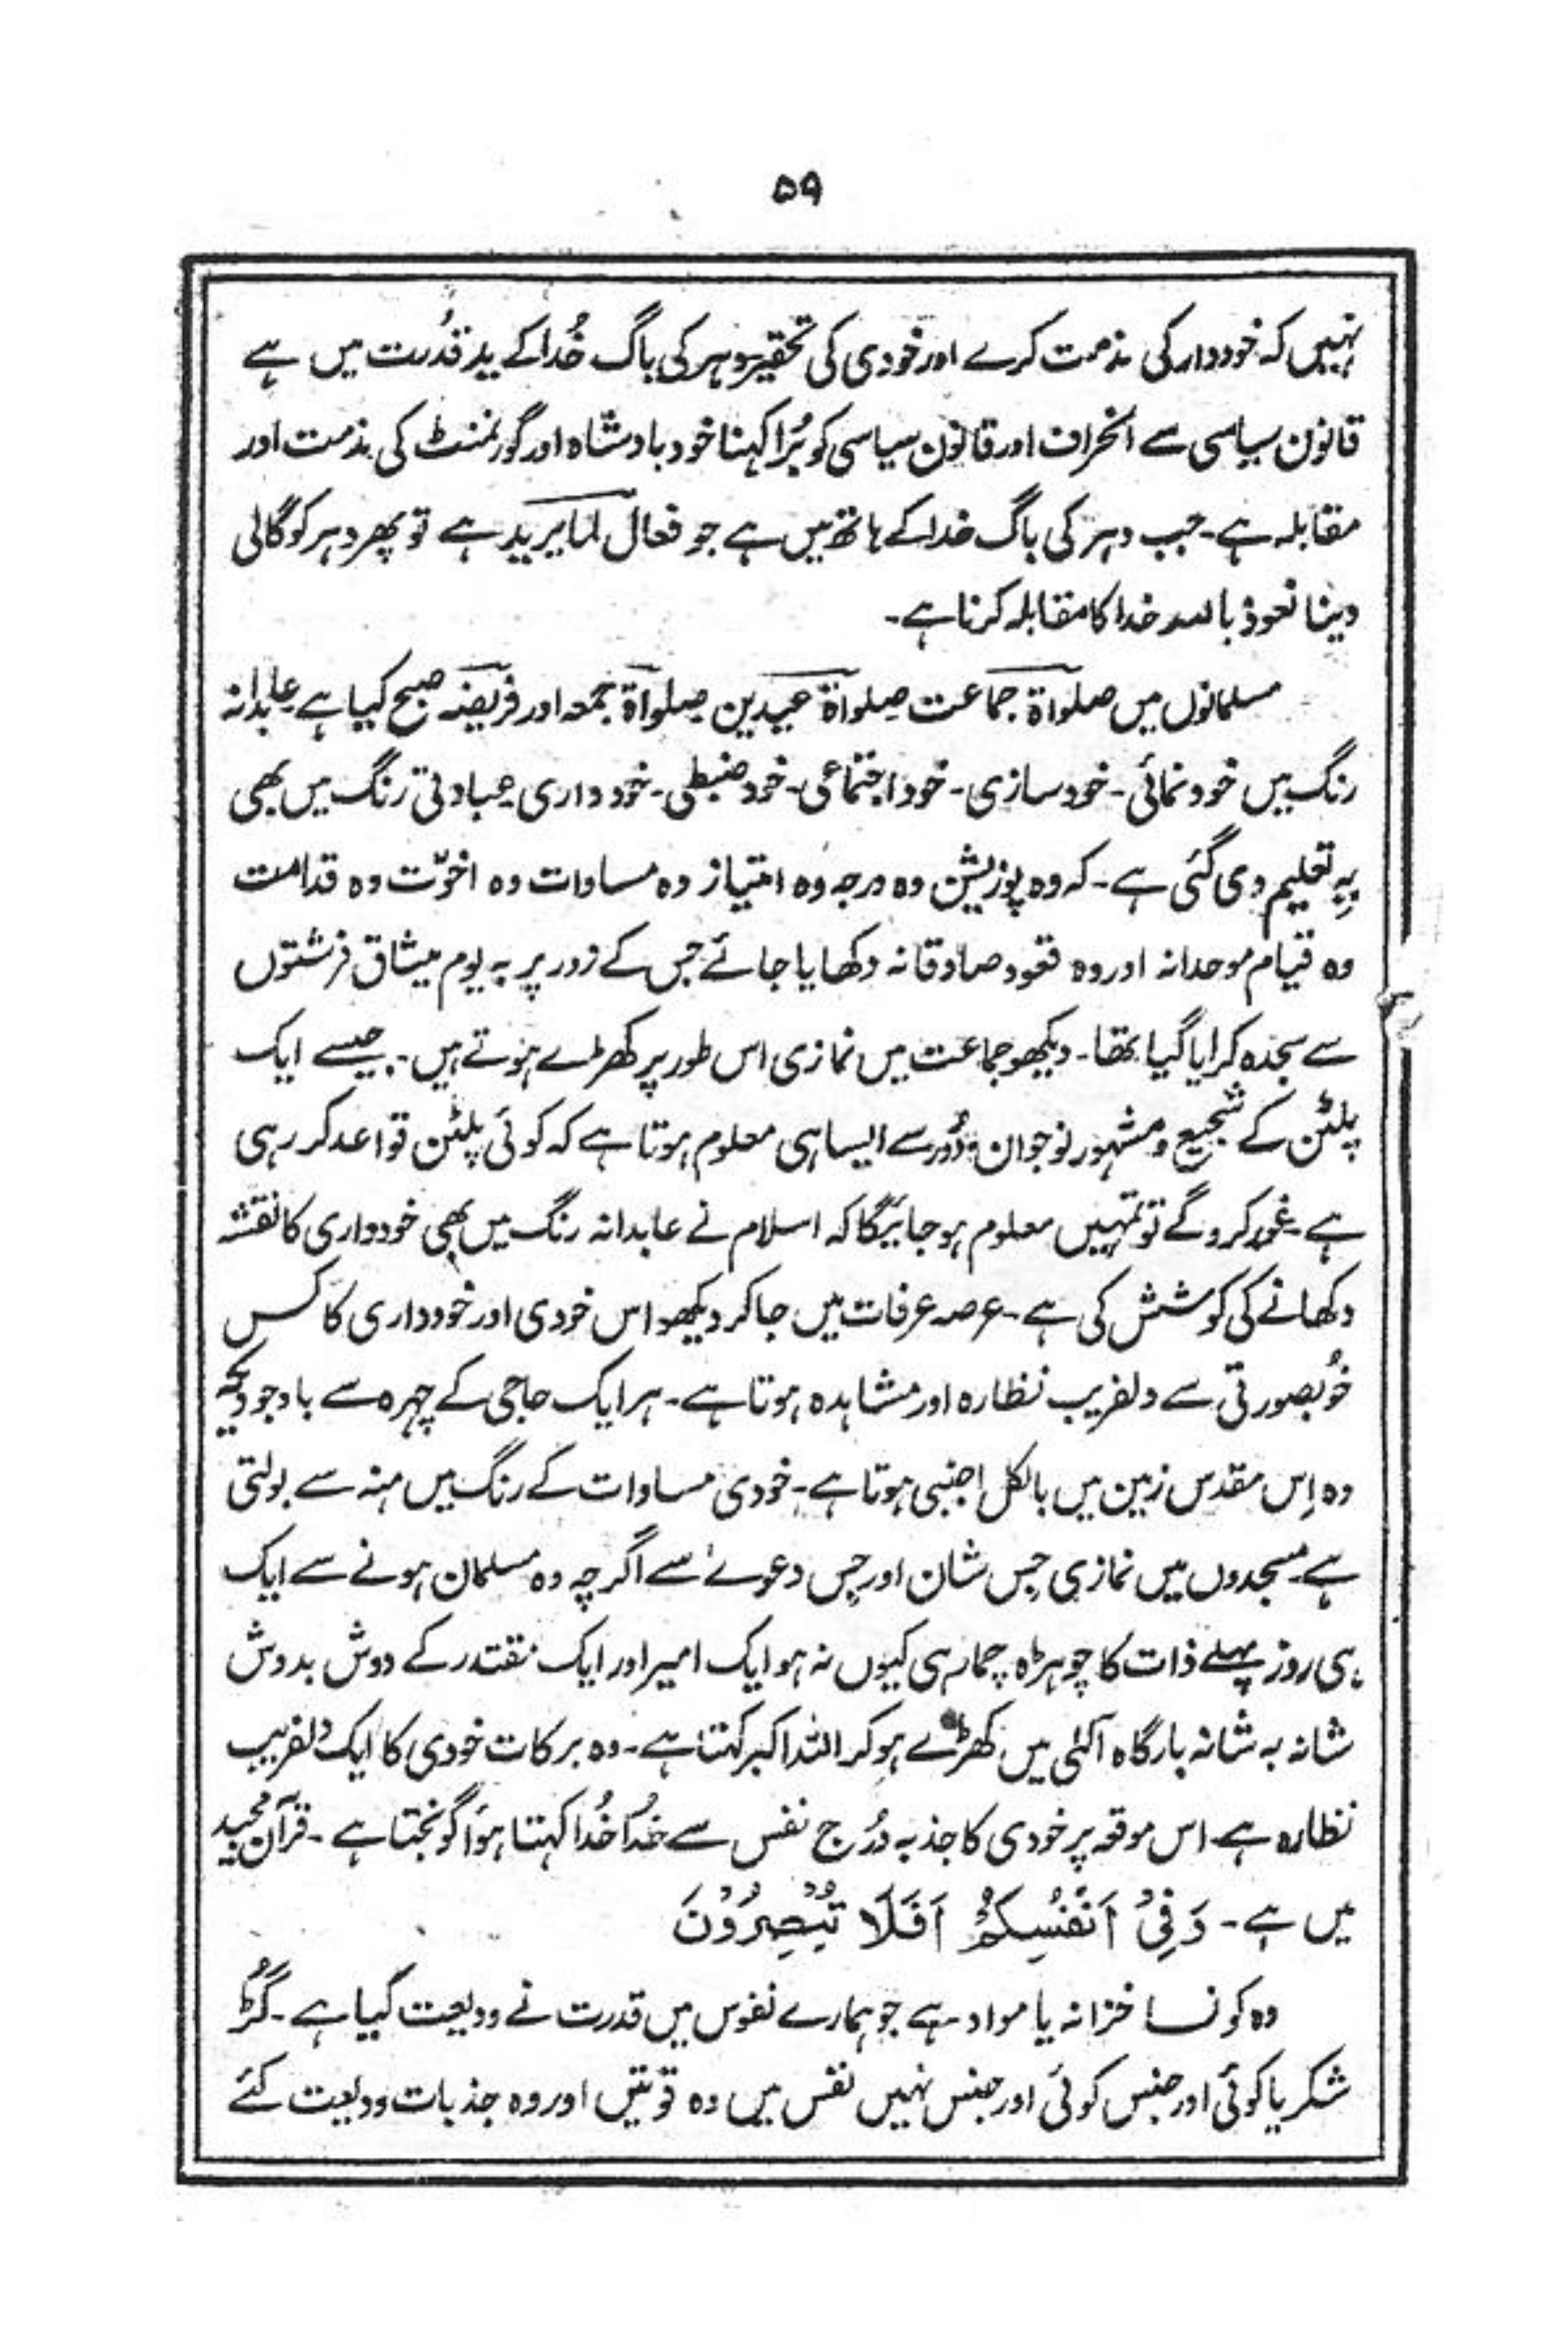 ۵۹
نہیں کہ خوددار کی مذمت کرے اور خودی کی تحقیر دہر کی باگ خُدا کے ید قدُرت میں ہے
قانون سیاسی سے انحراف اور قانون سیاسی کو بُرا کہنا خود بادشاہ اور گورنمنٹ کی مذمت اور
مقابلہ ہے۔ جب دہر کی باگ خدا کے ہاتھ میں ہے جو فعال لما یرید ہے تو پھر دہر کو گالی
دینا نعوذ باللہ خدا کا مقابلہ کرنا ہے۔
مسلمانوں میں صلواۃ جماعت صلواۃ عیدین صلواۃ جمعہ اور فریضہ صبح کیا ہے عابدانہ
رنگ میں خود نمائی۔ خود سازی۔ خود اجتماعی۔ خود ضبطی۔ خود داری عبادتی رنگ میں بھی
یہ تعلیم دی گئی ہے۔ کہ وہ پوزیشن وہ درجہ وہ امتیاز وہ مساوات وہ اخوّت وہ قدامت
وہ قیام موحدانہ اور وہ قعود صادقانہ دکھایا جائے جس کے زور پر بہ یوم میثاق فرشتوں
سے سجدہ کرایا گیا تھا۔ دیکھو جماعت میں نمازی اس طور پر کھڑے ہوتے ہیں۔ جیسے ایک
پلٹن کے شجیع و مشہور نوجوان دُور سے ایسا ہی معلوم ہوتا ہے کہ کوئی پلٹن قواعد کر رہی
ہے۔ غور کرو گے تو تمہیں معلوم ہو جائیگا کہ اسلام نے عابدانہ رنگ میں بھی خودداری کا نقشہ
دکھانے کی کوشش کی ہے۔ عرصہ عرفات میں جا کر دیکھو اس خودی اور خودداری کا کس
خُوبصورتی سے دلفریب نظارہ اور مشاہدہ ہوتا ہے۔ ہر ایک حاجی کے چہرہ سے باوجودیکہ
وہ اِس مقدس زمین میں بالکل اجنبی ہوتا ہے۔ خودی مساوات کے رنگ میں منہ سے بولتی
ہے۔ مسجدوں میں نمازی جس شان اور جس دعوےٰ سے اگرچہ وہ مسلمان ہونے سے ایک
ہی روز پہلے ذات کا چوہڑہ چمار ہی کیوں نہ ہو ایک امیر اور ایک مقتدر کے دوش بدوش
شانہ بہ شانہ بارگاہ آلٰہی میں کھڑے ہو کر اللہ اکبر کہتا ہے۔ وہ برکات خودی کا ایک دلفریب
نظارہ ہے۔ اس موقعہ پر خودی کا جذبہ دُرج نفس سے خُدا خُدا کہتا ہؤا گونجتا ہے۔ قرآن مجید
میں ہے۔ وَفِیْ اَنْفُسِکُمْ اَفَلَا تُبْصِرُوْنَ
وہ کونسا خزانہ یا مواد ہے جو ہمارے نفوس میں قدرت نے ودیعت کیا ہے۔ گُڑ
شکر یا کوئی اور جنس کوئی اور جنس نہیں نفس میں وہ قوتیں اور وہ جذبات ودیعت کئے